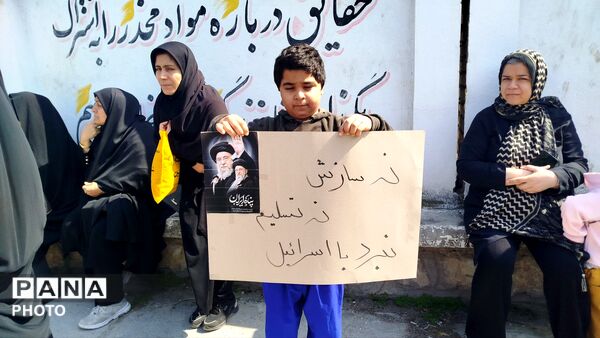 حقایق درباره مواد مخدر را به اشتراک
نه سازش
نه تسلیم
نبرد با اسرائیل
PANA
PHOTO